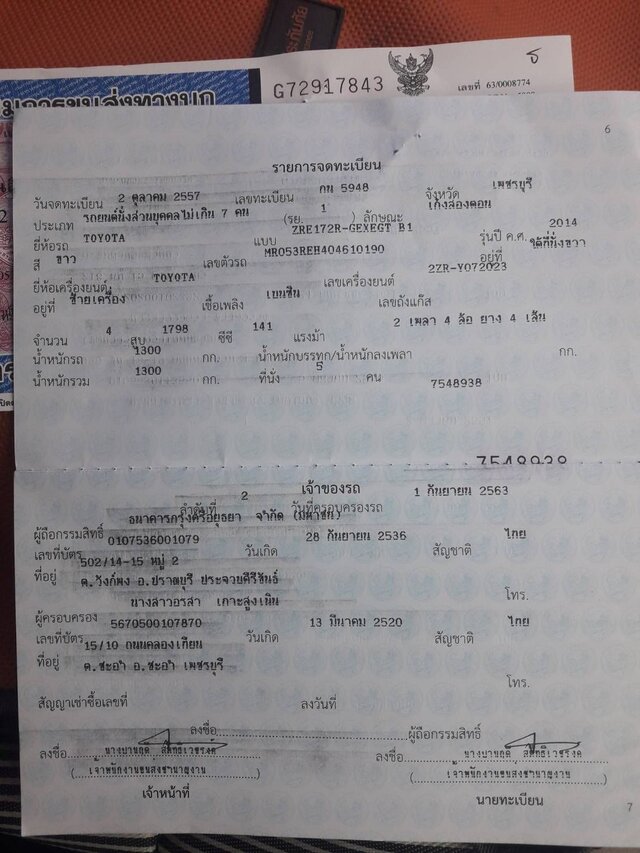 G72917843
เลขที่ 63/0008774
6
รายการจดทะเบียน
วันจดทะเบียน 2 ตุลาคม 2557 เลขทะเบียน กน 5948 จังหวัด เพชรบุรี
ประเภท รถยนต์นั่งส่วนบุคคลไม่เกิน 7 คน (รย. 1 ) ลักษณะ เก๋งสองตอน
ยี่ห้อรถ TOYOTA แบบ ZRE172R-GEXEGT B1 รุ่นปี ค.ศ. 2014
สี ขาว เลขตัวรถ MR053REH404610190 อยู่ที่ ใต้ที่นั่งขวา
ยี่ห้อเครื่องยนต์ TOYOTA เลขเครื่องยนต์ 2ZR-Y072023
อยู่ที่ ซ้ายเครื่อง เชื้อเพลิง เบนซิน เลขถังแก๊ส
จำนวน 4 สูบ 1798 ซีซี 141 แรงม้า 2 เพลา 4 ล้อ ยาง 4 เส้น
น้ำหนักรถ 1300 กก. น้ำหนักบรรทุก/น้ำหนักลงเพลา กก.
น้ำหนักรวม 1300 กก. ที่นั่ง 5 คน 7548938
7548938
เจ้าของรถ
ลำดับที่ 2 วันที่ครอบครองรถ 1 กันยายน 2563
ผู้ถือกรรมสิทธิ์ ธนาคารกรุงศรีอยุธยา จำกัด (มหาชน)
เลขที่บัตร 0107536001079 วันเกิด 28 กันยายน 2536 สัญชาติ ไทย
ที่อยู่ 502/14-15 หมู่ 2
ต.วังก์พง อ.ปราณบุรี ประจวบคีรีขันธ์ โทร.
ผู้ครอบครอง นางสาวอรสา เกาะสูงเนิน
เลขที่บัตร 5670500107870 วันเกิด 13 มีนาคม 2520 สัญชาติ ไทย
ที่อยู่ 15/10 ถนนคลองเทียน
ต.ชะอำ อ.ชะอำ เพชรบุรี โทร.
สัญญาเช่าซื้อเลขที่ ลงวันที่
ลงชื่อ ผู้ถือกรรมสิทธิ์
ลงชื่อ ลงชื่อ
(เจ้าพนักงานขนส่งชำนาญงาน) (เจ้าพนักงานขนส่งชำนาญงาน)
เจ้าหน้าที่ นายทะเบียน
7